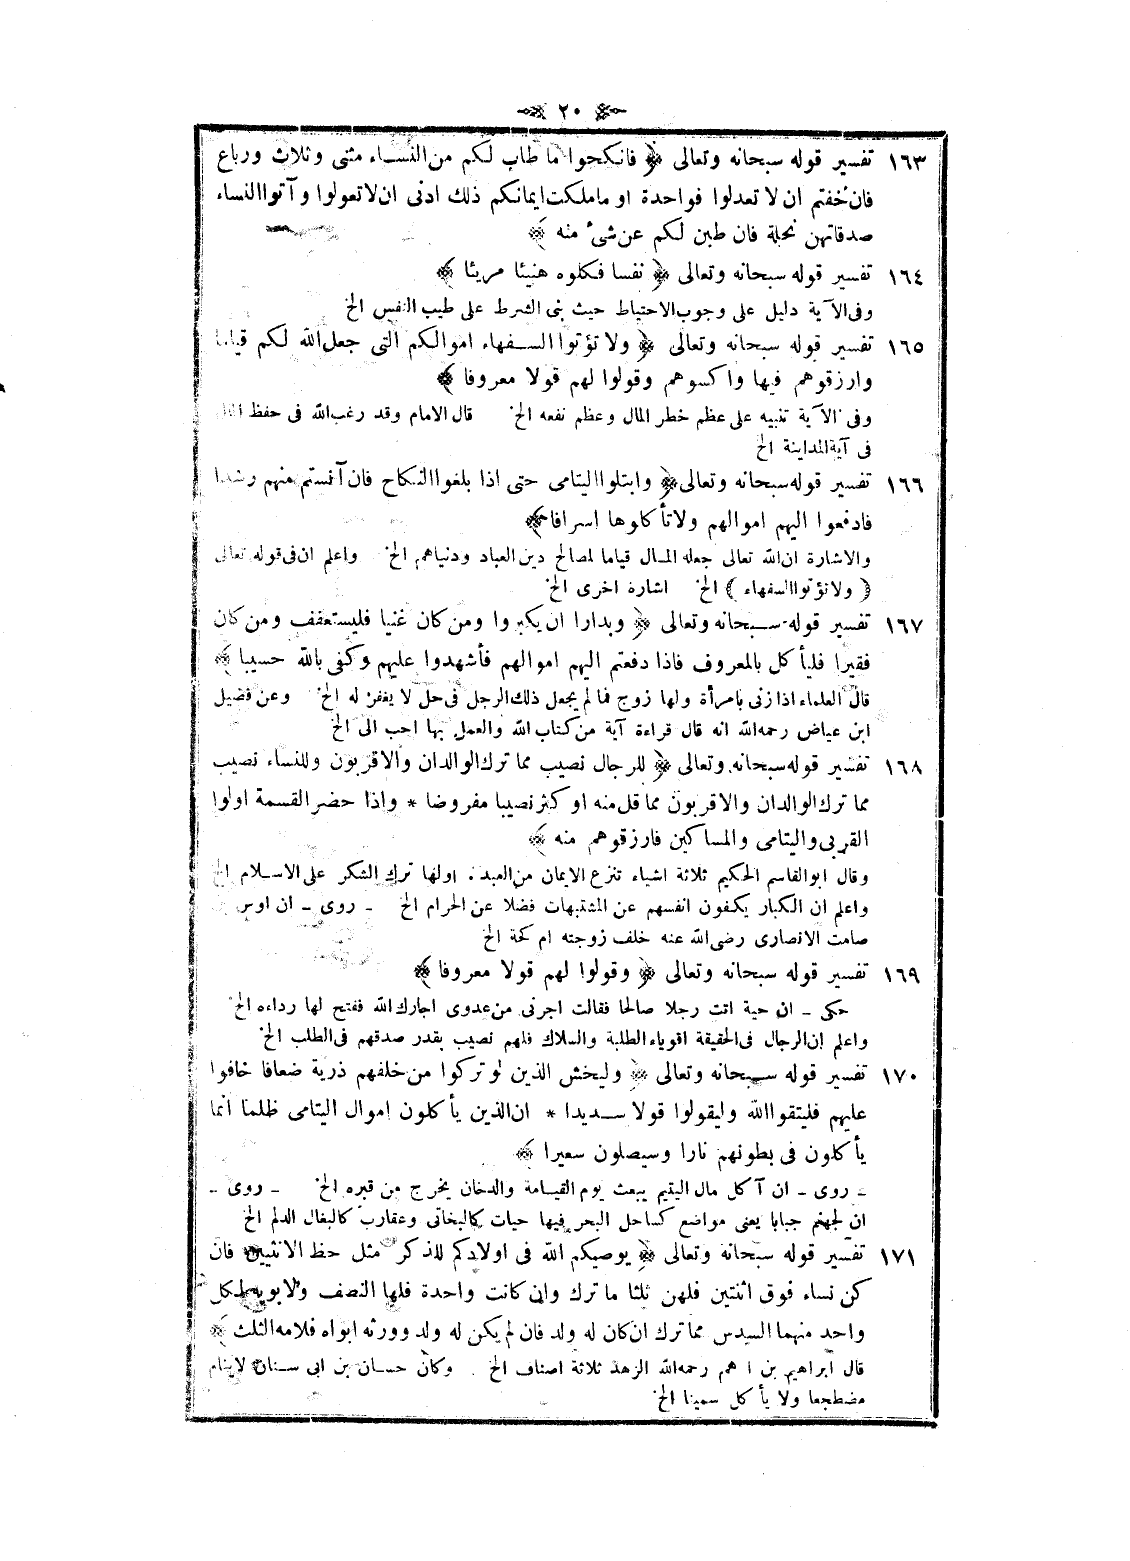 ٢٠
١٦٣ تفسير قوله سبحانه وتعالى ﴿ فانكحوا ما طاب لكم من النساء مثنى وثلاث ورباع
فان خفتم ان لا تعدلوا فواحدة او ما ملكت ايمانكم ذلك ادنى ان لا تعولوا وآتوا النساء
صدقاتهن نحلة فان طبن لكم عن شئ منه ﴾
١٦٤ تفسير قوله سبحانه وتعالى ﴿ نفسا فكلوه هنيئا مريئا ﴾
وفى الآية دليل على وجوب الاحتياط حيث بنى الشرط على طيب النفس الخ
١٦٥ تفسير قوله سبحانه وتعالى ﴿ ولا تؤتوا السفهاء اموالكم التى جعل الله لكم قياما
وارزقوهم فيها واكسوهم وقولوا لهم قولا معروفا ﴾
وفى الآية تنبيه على عظم خطر المال وعظم نفعه الخ قال الامام وقد رغب الله فى حفظ المال
فى آية المداينة الخ
١٦٦ تفسير قوله سبحانه وتعالى ﴿ وابتلوا اليتامى حتى اذا بلغوا النكاح فان آنستم منهم رشدا
فادفعوا اليهم اموالهم ولا تأكلوها اسرافا ﴾
والاشارة ان الله تعالى جعله المال قياما لمصالح دين العباد ودنياهم الخ واعلم ان فى قوله تعالى
﴿ ولا تؤتوا السفهاء ﴾ الخ اشارة اخرى الخ
١٦٧ تفسير قوله سبحانه وتعالى ﴿ وبدارا ان يكبروا ومن كان غنيا فليستعفف ومن كان
فقيرا فليأكل بالمعروف فاذا دفعتم اليهم اموالهم فأشهدوا عليهم وكفى بالله حسيبا ﴾
قال العلماء اذا زنى بامرأة ولها زوج فما لم يجعل ذلك الرجل فى حل لا يغفر له الخ وعن فضيل
ابن عياض رحمه الله انه قال قراءة آية من كتاب الله والعمل بها احب الى الخ
١٦٨ تفسير قوله سبحانه وتعالى ﴿ للرجال نصيب مما ترك الوالدان والاقربون وللنساء نصيب
مما ترك الوالدان والاقربون مما قل منه او كثر نصيبا مفروضا * واذا حضر القسمة اولوا
القربى واليتامى والمساكين فارزقوهم منه ﴾
وقال ابو القاسم الحكيم ثلاثة اشياء تنزع الايمان من العبد . اولها ترك الشكر على الاسلام الخ
واعلم ان الكبار يكفون انفسهم عن المشتبهات فضلا عن الحرام الخ ـ روى ـ ان اوس
صامت الانصارى رضى الله عنه خلف زوجته ام كحة الخ
١٦٩ تفسير قوله سبحانه وتعالى ﴿ وقولوا لهم قولا معروفا ﴾
حكى ـ ان حية اتت رجلا صالحا فقالت اجرنى من عدوى اجارك الله ففتح لها رداءه الخ
واعلم ان الرجال فى الحقيقة اقوياء الطلبة والسلاك فلهم نصيب بقدر صدقهم فى الطلب الخ
١٧٠ تفسير قوله سبحانه وتعالى ﴿ وليخش الذين لو تركوا من خلفهم ذرية ضعافا خافوا
عليهم فليتقوا الله وليقولوا قولا سديدا * ان الذين يأكلون اموال اليتامى ظلما انما
يأكلون فى بطونهم نارا وسيصلون سعيرا ﴾
ـ روى ـ ان آكل مال اليتيم يبعث يوم القيامة والدخان يخرج من قبره الخ ـ روى ـ
ان لجهنم جبابا يعنى مواضع كساحل البحر فيها حيات كالبخاتى وعقارب كالبغال الدلم الخ
١٧١ تفسير قوله سبحانه وتعالى ﴿ يوصيكم الله فى اولادكم للذكر مثل حظ الانثيين فان
كن نساء فوق اثنتين فلهن ثلثا ما ترك وان كانت واحدة فلها النصف ولابويه لكل
واحد منهما السدس مما ترك ان كان له ولد فان لم يكن له ولد وورثه ابواه فلامه الثلث ﴾
قال ابراهيم بن ا هم رحمه الله الزهد ثلاثة اصناف الخ . وكان حسان بن ابى سنان لاينام
مضطجعا ولا يأكل سمينا الخ